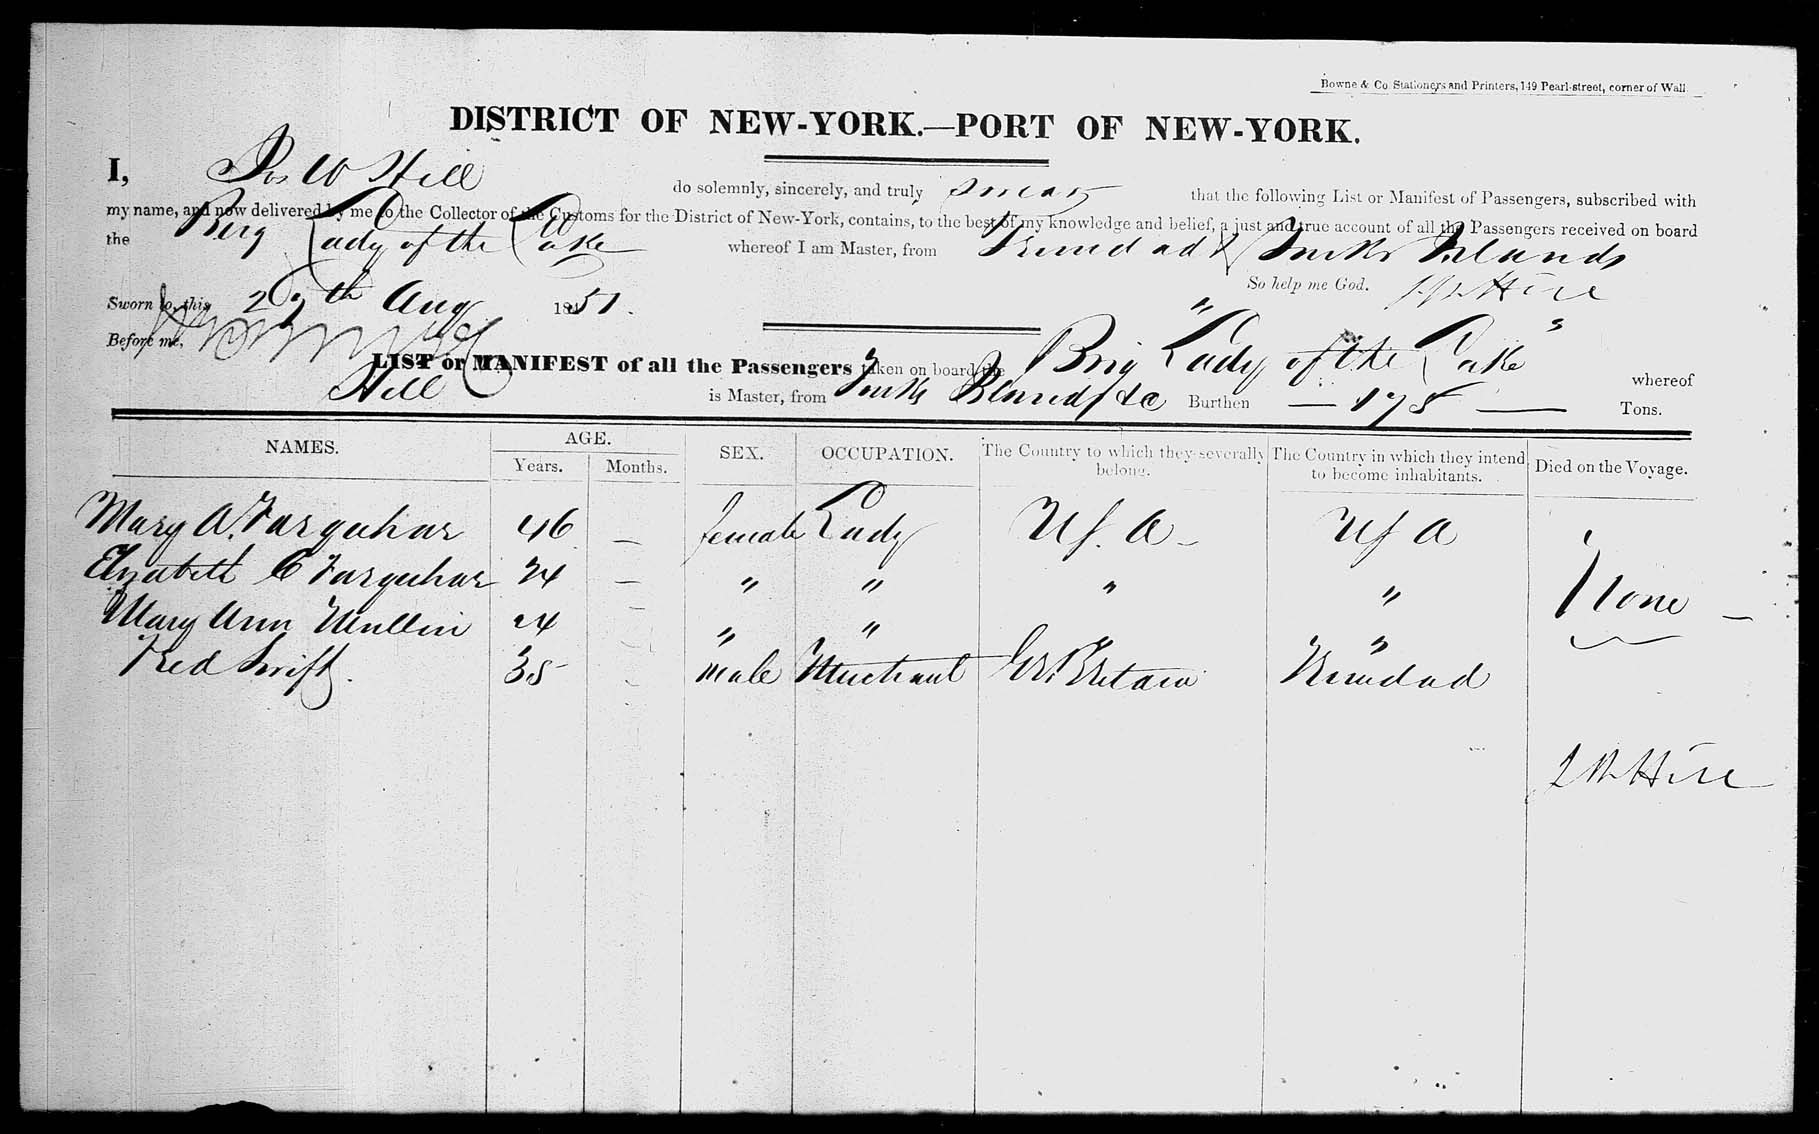 Bowne & Co. Stationers and Printers, 149 Pearl-street, corner of Wall.
DISTRICT OF NEW-YORK.—PORT OF NEW-YORK.
I, Jos W Hill do solemnly, sincerely, and truly swear that the following List or Manifest of Passengers, subscribed with
my name, and now delivered by me to the Collector of the Customs for the District of New-York, contains, to the best of my knowledge and belief, a just and true account of all the Passengers received on board
the Brig Lady of the Lake whereof I am Master, from Trinidad & Turks Islands
So help me God. J W Hill
Sworn to, this 29th Aug 1851.
Before me,
LIST or MANIFEST of all the Passengers taken on board the Brig "Lady of the Lake" whereof
Hill is Master, from Turks Island &c Burthen — 178 — Tons.
NAMES. AGE. SEX. OCCUPATION. The Country to which they severally belong. The Country in which they intend to become inhabitants. Died on the Voyage.
Years. Months.
Mary A. Farquhar 46 — female Lady U S. A - U S A
Elizabeth C Farquhar 24 — " " " " None —
Mary Ann Mullin 24 - " " " "
Fred Swift. 35 - male Merchant Gr. Britain Trinidad
J W Hill